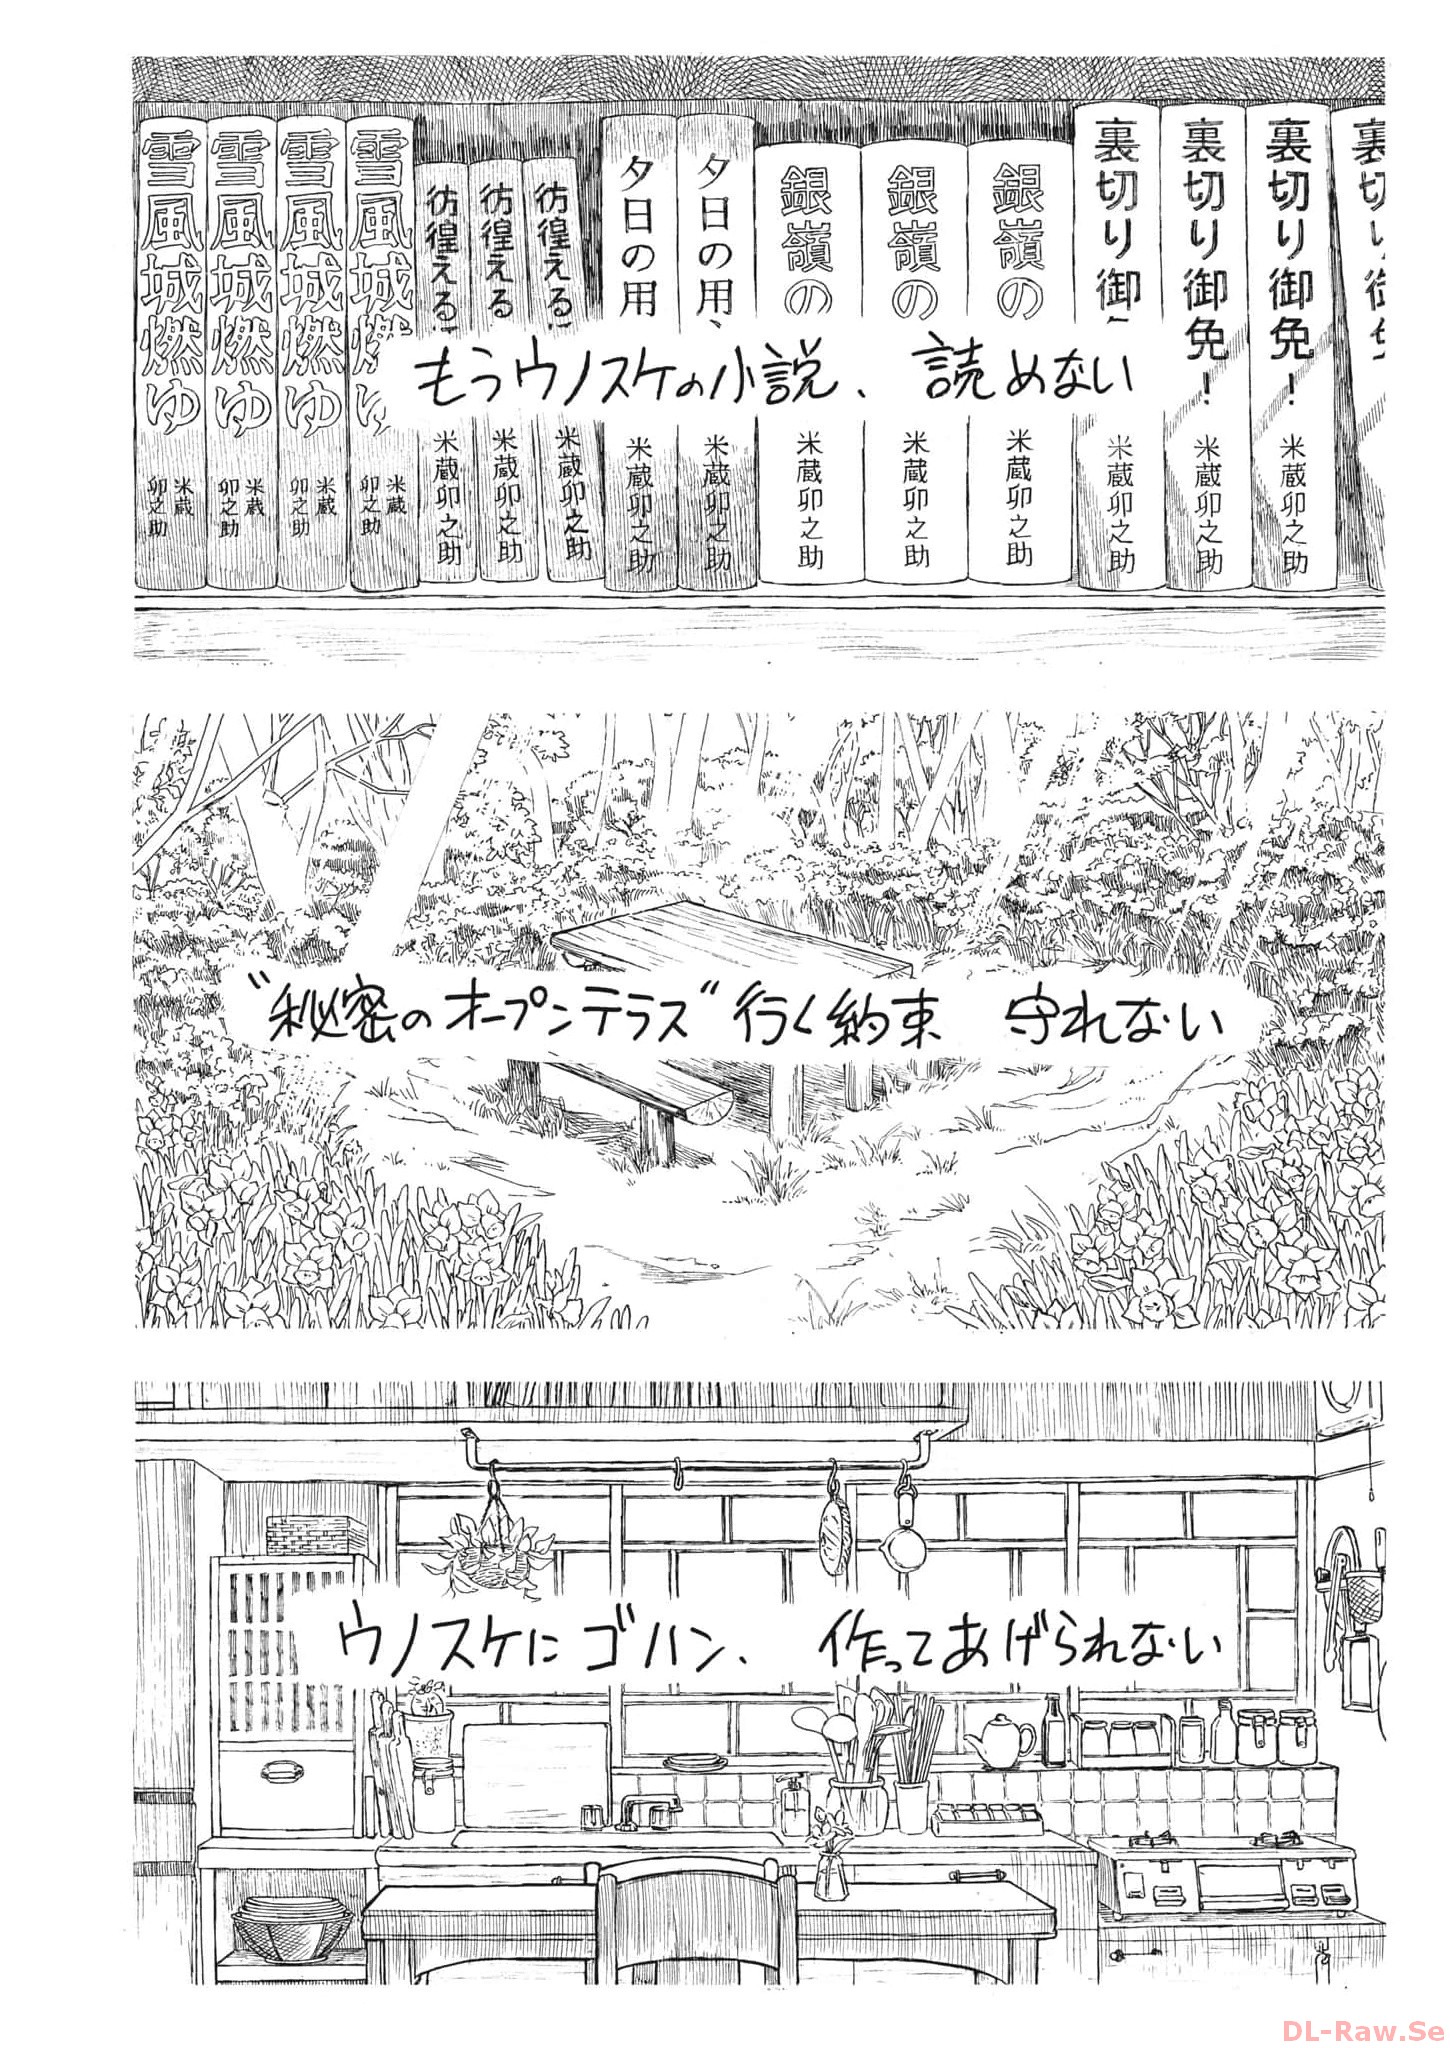 裏切り御免！ 米蔵卯之助
裏切り御免！ 米蔵卯之助
裏切り御 米蔵卯之助
銀嶺の 米蔵卯之助
銀嶺の 米蔵卯之助
銀嶺の 米蔵卯之助
夕日の用 米蔵卯之助
夕日の用 米蔵卯之助
彷徨える 米蔵卯之助
彷徨える 米蔵卯之助
彷徨える 米蔵卯之助
雪風城燃ゆ 米蔵卯之助
雪風城燃ゆ 米蔵卯之助
雪風城燃ゆ 米蔵卯之助
雪風城燃ゆ 米蔵卯之助
もうウノスケの小説、 読めない
"秘密のオープンテラス"行く約束 守れない
ウノスケにゴハン、 作ってあげられない
DL-Raw.Se